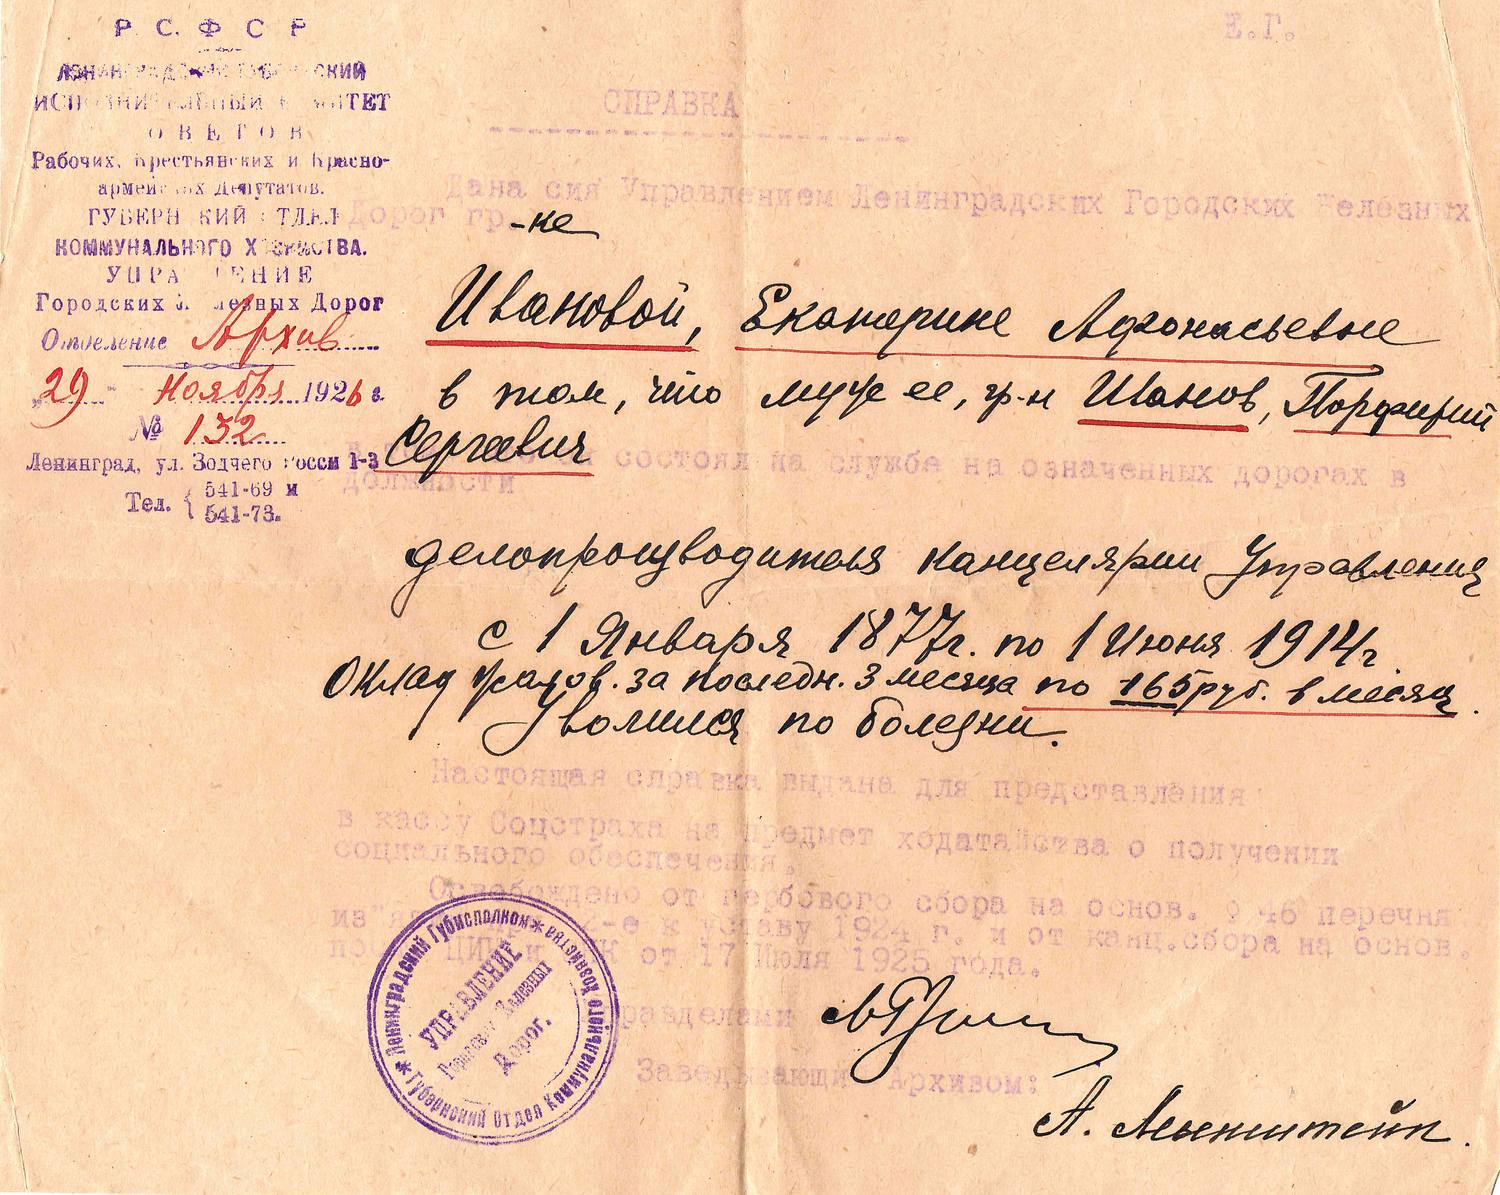 Р. С. Ф. С. Р.
ЛЕНИНГРАДСКИЙ ГУБЕРНСКИЙ
ИСПОЛНИТЕЛЬНЫЙ КОМИТЕТ
СОВЕТОВ
Рабочих, Крестьянских и Красно-
армейских Депутатов.
ГУБЕРНСКИЙ ОТДЕЛ
КОММУНАЛЬНОГО ХОЗЯЙСТВА.
УПРАВЛЕНИЕ
Городских Железных Дорог
Отделение Архив
„29" Ноября 1926 г.
№ 132
Ленинград, ул. Зодчего Росси 1-3
Тел. { 541-69 и
541-73.
Е.Г.
СПРАВКА
Дана сия Управлением Ленинградских Городских Железных
Дорог гр-ке
Ивановой, Екатерине Афонасьевне
в том, что муж ее, гр-н Иванов, Порфирий
Сергеевич
состоял на службе на означенных дорогах в
должности
делопроизводителя канцелярии Управления
с 1 Января 1877г. по 1 Июня 1914г.
Оклад жалов. за последн. 3 месяца по 165 руб. в месяц.
Уволился по болезни.
Настоящая справка выдана для представления
в кассу Соцстраха на предмет ходатайства о получении
социального обеспечения.
Освобождено от гербового сбора на основ. § 46 перечня
из"ят 2-е к уставу 1924 г. и от канц.сбора на основ.
пост. ЦИК и СНК от 17 Июля 1925 года.
Управделами
Заведывающий Архивом:
А. Мынштейн.
* Ленинградский Губисполком * Губернский Отдел Коммунального Хозяйства
УПРАВЛЕНИЕ
Городских Железных
Дорог.